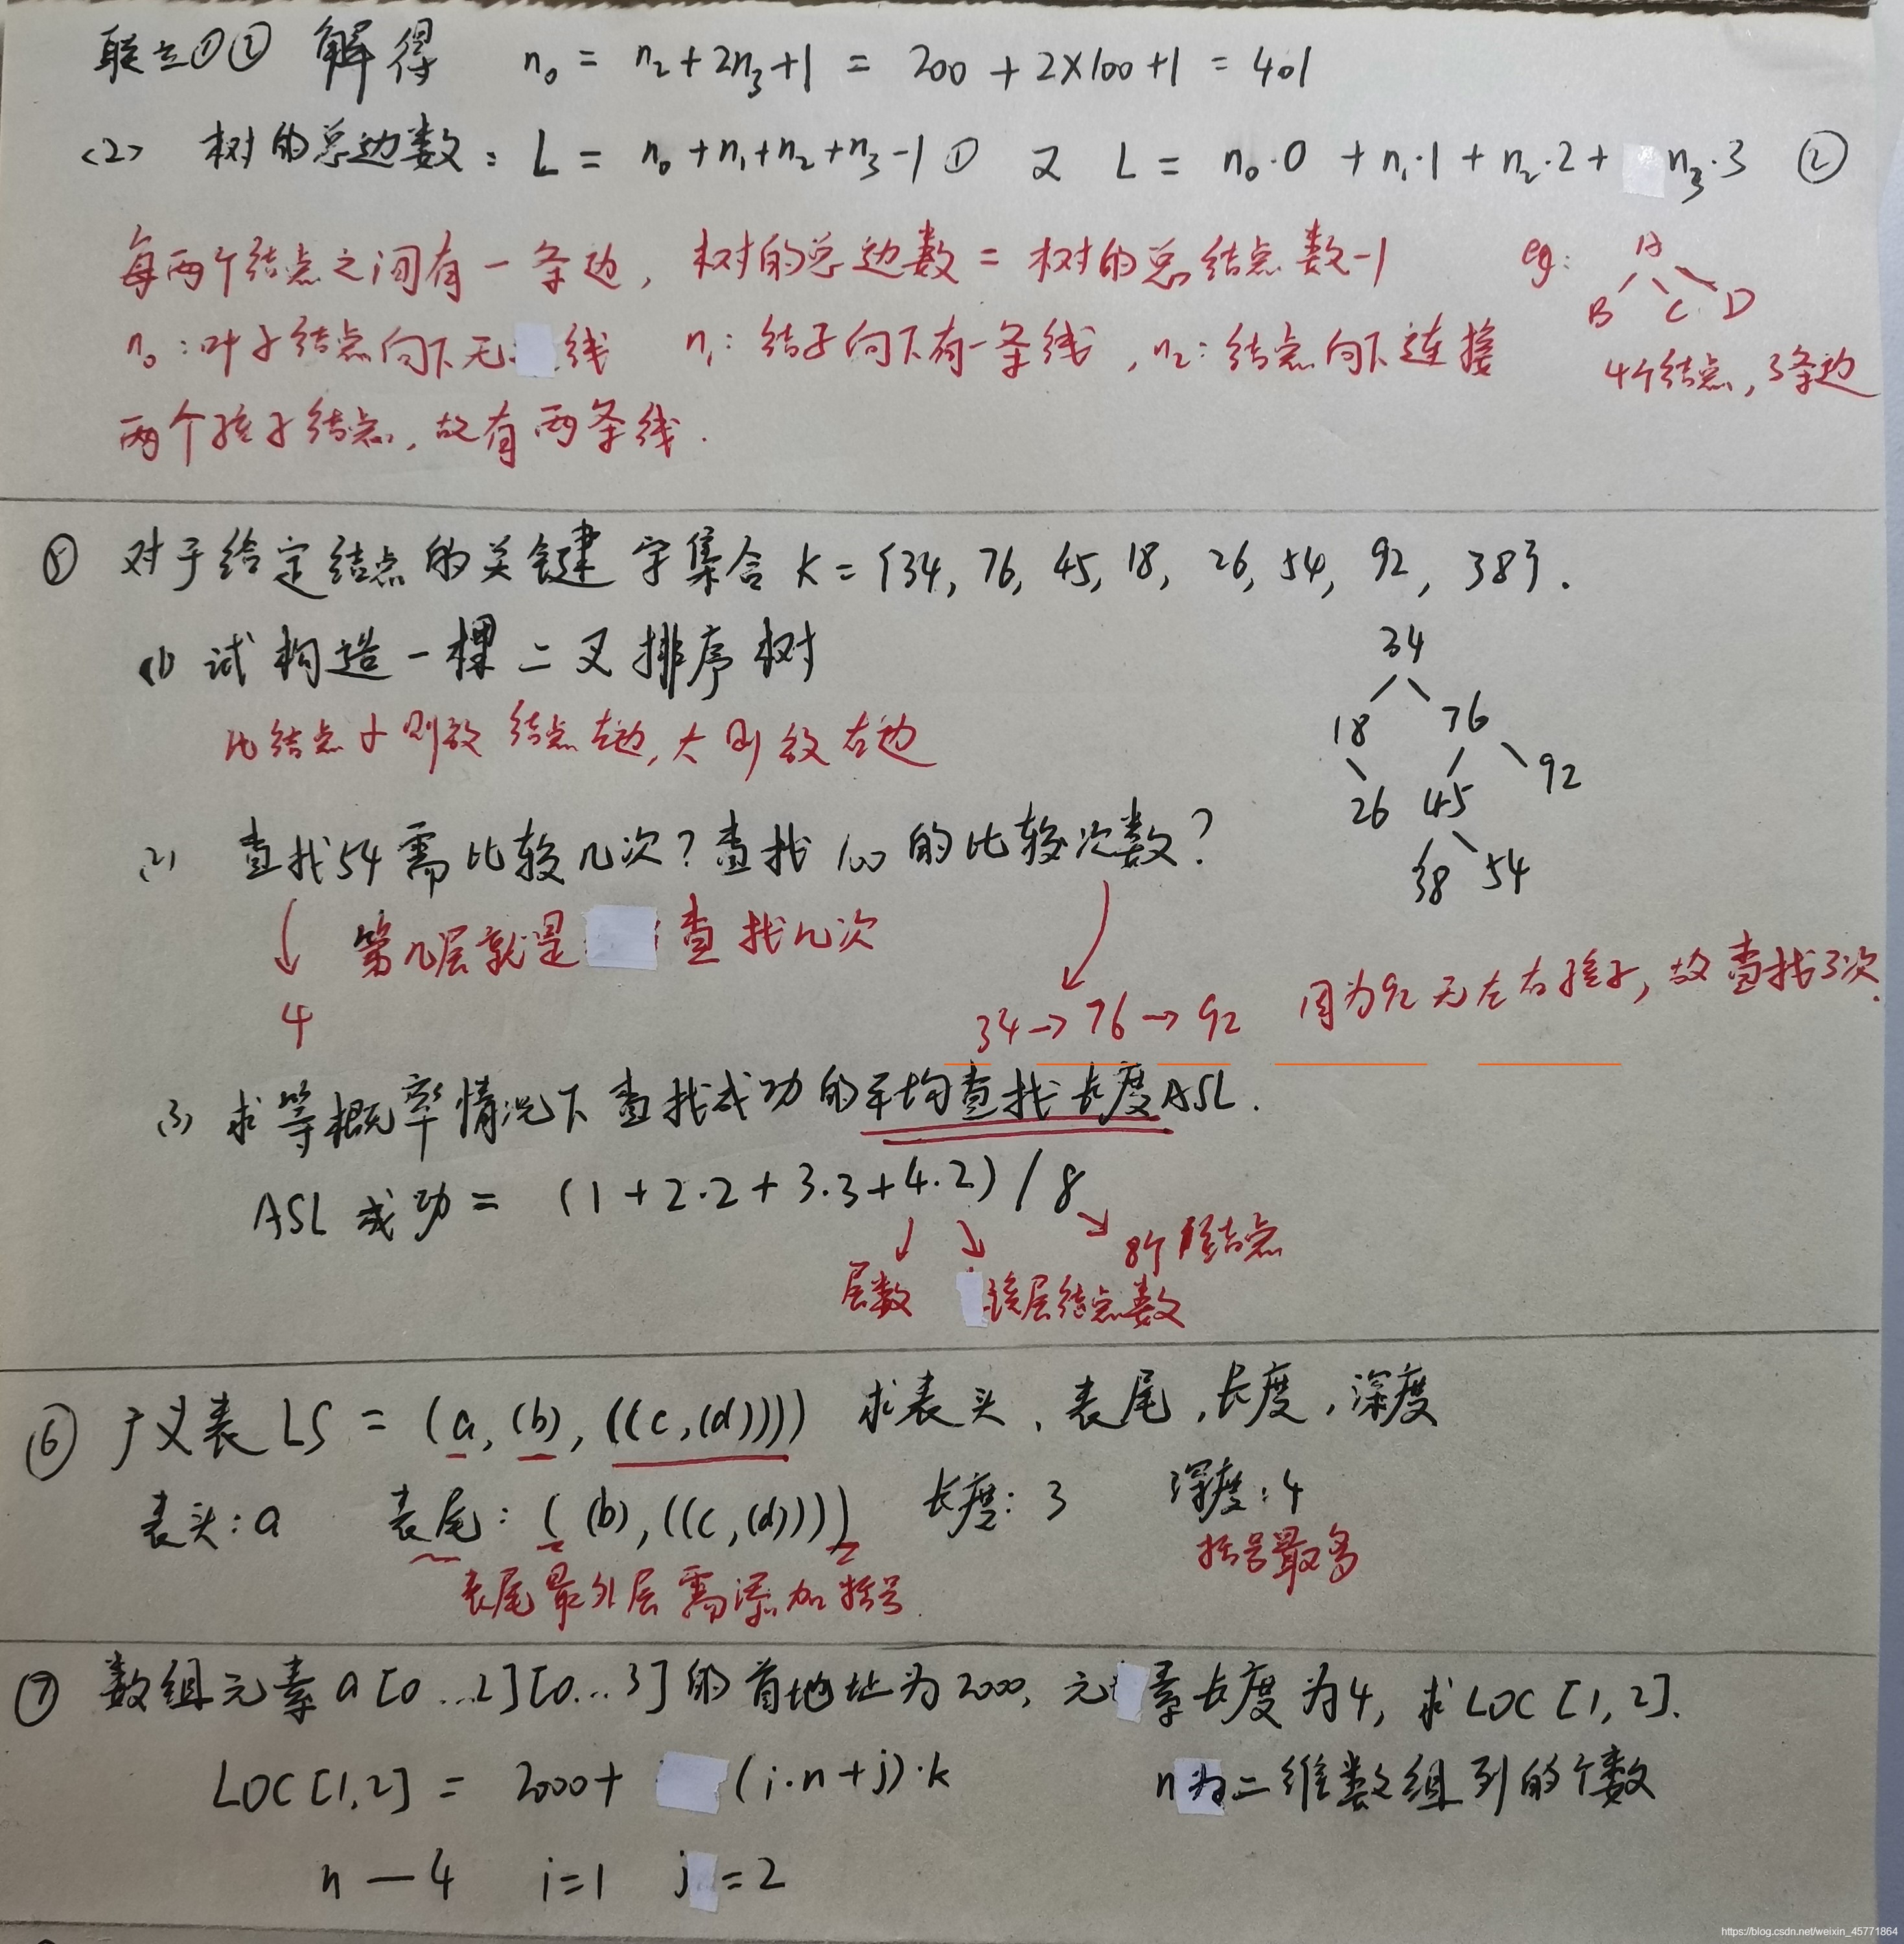 联立①② 解得 n₀ = n₂+2n₃+1 = 200 + 2×100+1 = 401
<2> 树的总边数: L = n₀+n₁+n₂+n₃-1 ① 又 L = n₀·0 + n₁·1 + n₂·2 + n₃·3 ②
每两个结点之间有一条边, 树的总边数 = 树的总结点数-1 eg: A
B C D
n₀:叶子结点向下无线 n₁: 结子向下有一条线, n₂: 结点向下连接 4个结点, 3条边
两个孩子结点, 故有两条线.
⑤ 对于给定结点的关键字集合 K = {34, 76, 45, 18, 26, 54, 92, 38}.
(1) 试构造一棵二叉排序树
34
比结点小则放结点左边, 大则放右边
18 76
26 45 92
38 54
(2) 查找54需比较几次? 查找100的比较次数?
第几层就是查找几次
4
34→76→92 因为92无左右孩子, 故查找3次.
(3) 求等概率情况下查找成功的平均查找长度ASL.
ASL成功 = (1+2·2+3·3+4·2)/8
层数 该层结点数 8个结点
⑥ 广义表 LS = (a, (b), ((c,(d)))) 求表头、表尾,长度,深度
表头: a 表尾: ( (b), ((c,(d)))) 长度: 3 深度: 4
括号最多
表尾最外层需添加括号.
⑦ 数组元素 a[0...2][0...3]的首地址为2000, 元素长度为4, 求LOC[1,2].
LOC[1,2] = 2000+ (i·n+j)·k n为二维数组列的个数
n — 4 i=1 j=2
https://blog.csdn.net/weixin_45771864